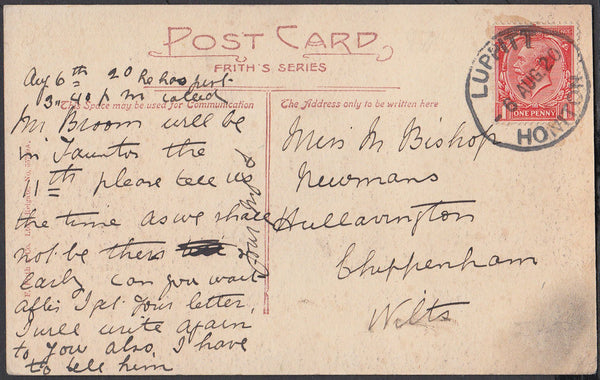 POST CARD
FRITH'S SERIES
This Space may be used for Communication
The Address only to be written here
LUPPITT
6 AUG 20
HONITON
1 ONE PENNY 1
Aug 6th 20 he has just
3" 40 p m called
Mr Broom will be
in Taunton the
11th please tell us
the time as we shall
not be there
early can you wait
after I get your letter
I will write again
to you also, I have
to tell him
Miss M Bishop
Newmans
Hullavington
Chippenham
Wilts